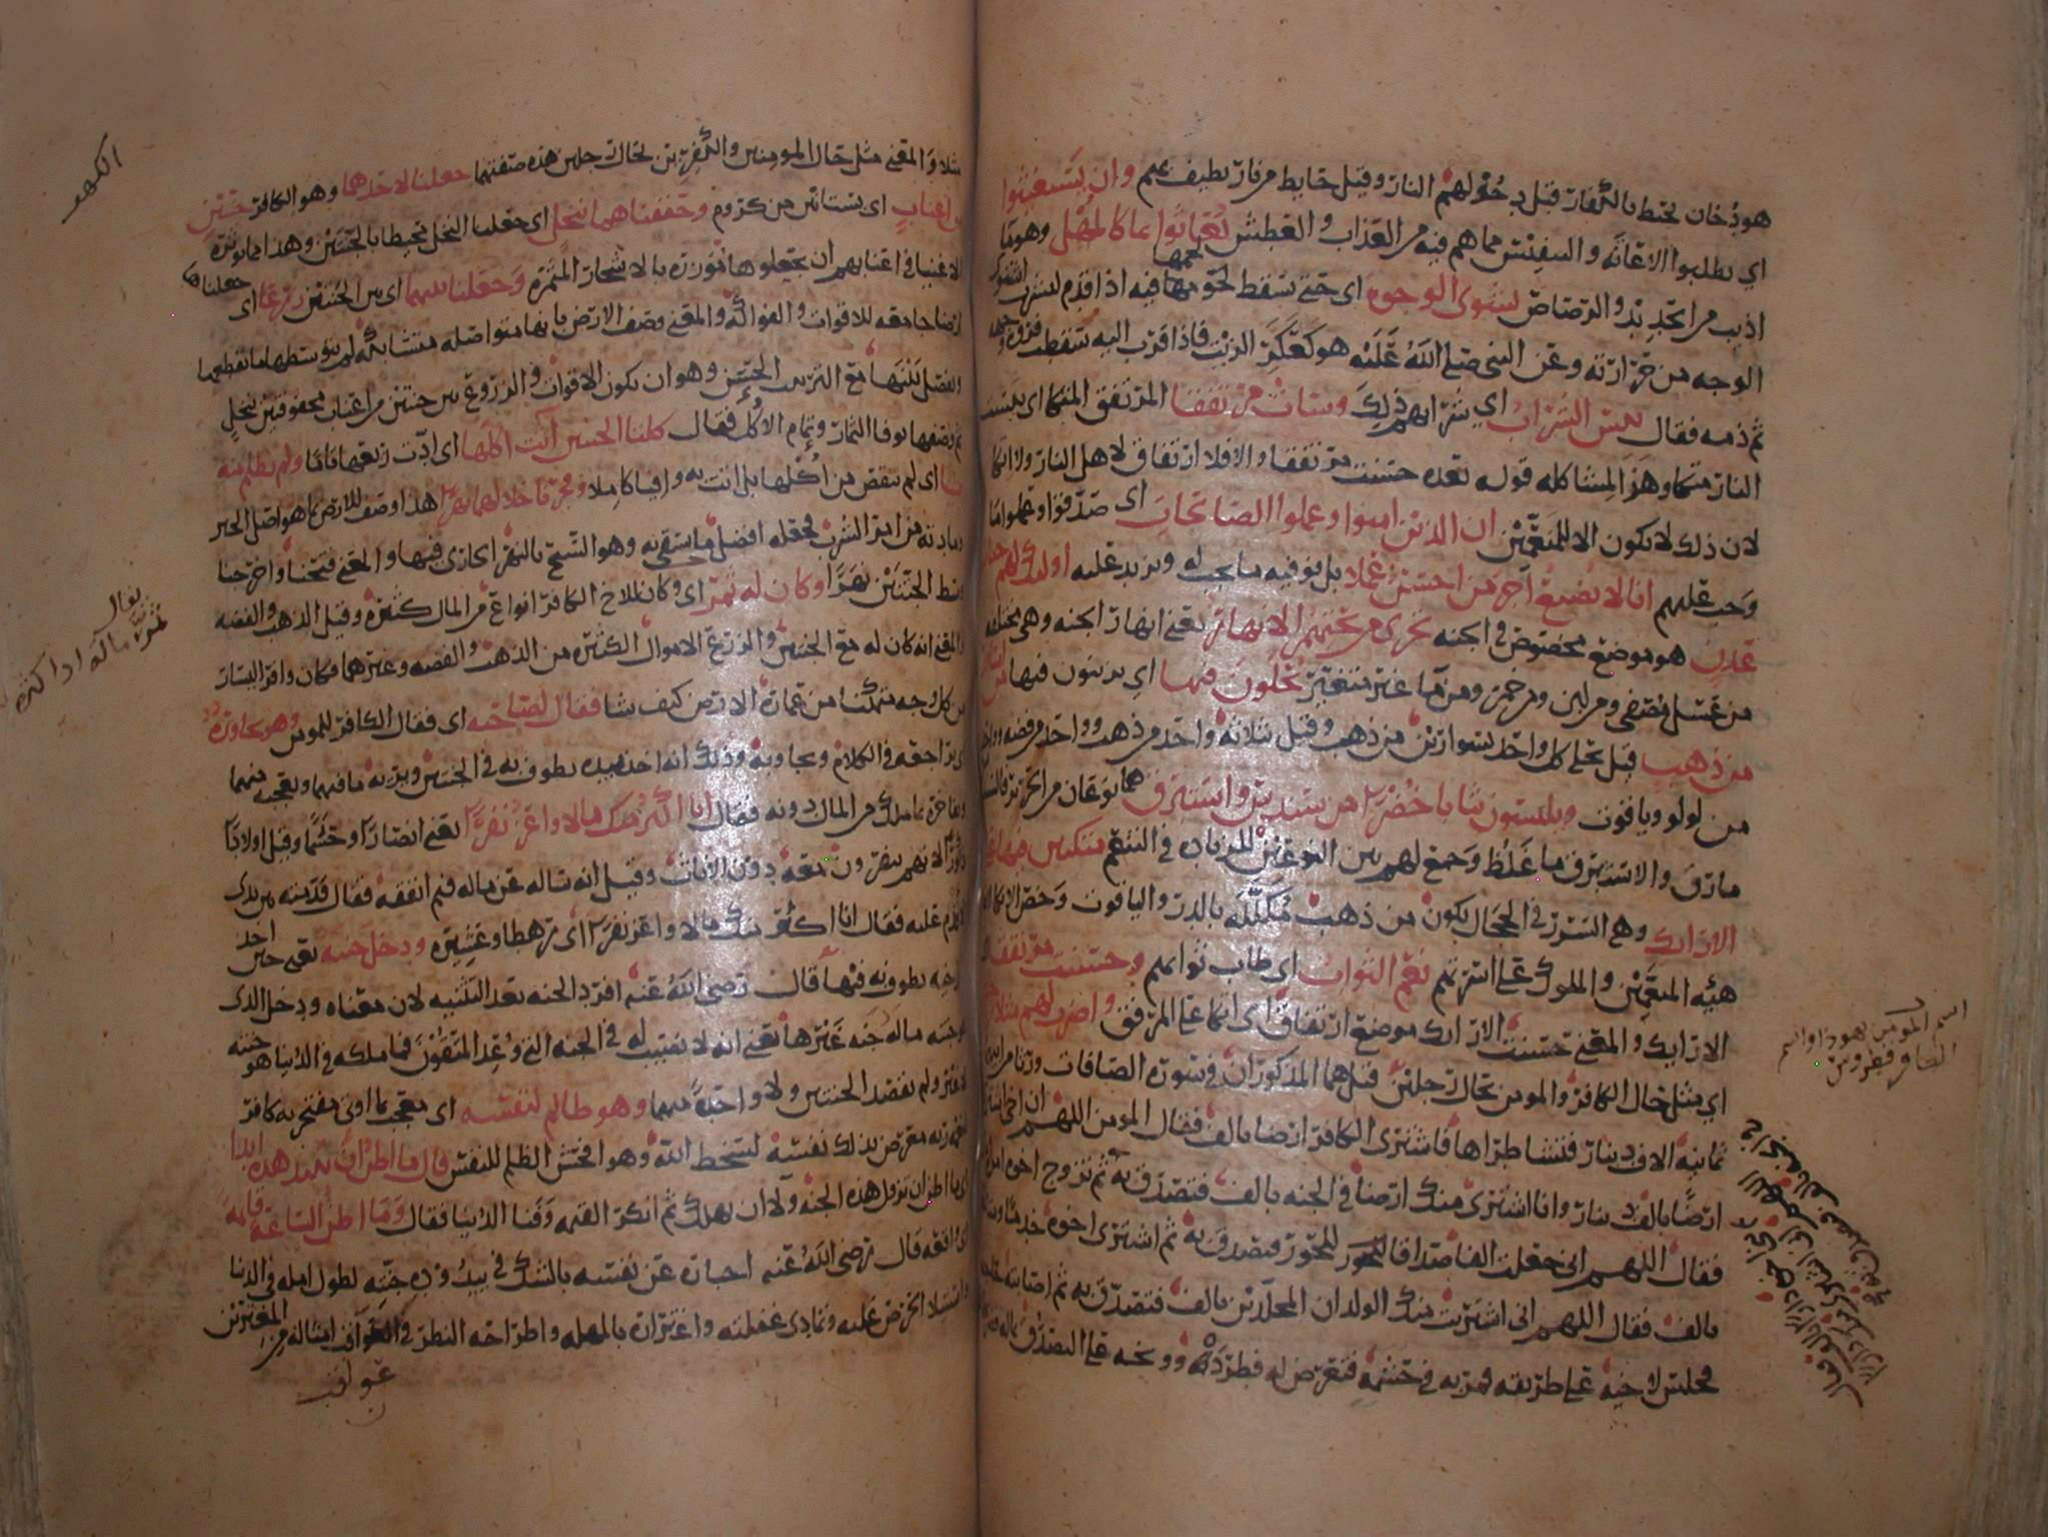 هو دخان يحيط بالكفار قبل دخولهم النار وقيل حايط من نار يطيف بهم وان يستغيثوا
اي يطلبوا الاغاثه والتنفيس مما هم فيه من العذاب والعطش يغاثوا بما كالمهل وهو ما
اذيب من الحديد والرصاص يشوى الوجوه اى حتى تسقط لحومها فيه اذا قدم ليشرب انشوى
الوجه من حرارته وعن النبى صلى الله عليه هو كعكر الزيت فاذا قرب اليه سقطت فروة وجهه
ثم ذمه فقال بئس الشراب اي شرابهم ذلك وسات مرتفقا المرتفق المتكا اى بيست
النار متكا وهذا لمشاكله قوله بعده حسنت مرتفقا والا فلا ارتفاق لاهل النار ولا اتكا
لان ذلك لا يكون الا للمنعمين ان الذين امنوا وعملوا الصالحات اى صدقوا وعملوا ما
وجب عليهم انا لا نضيع اجر من احسن عملا بل نوفيه ما يجب له ونزيد عليه اولئك لهم جنات
عدن هو موضع مخصوص في الجنه تجرى من تحتهم الانهار يعنى انهار الجنه وهى مختلفه
من عسل مصفى ومن لبن ومن خمر ومن ما غير متغير يحلون فيها اي يزينون فيها من اساور
من ذهب قيل يحلى كل واحد بسوارين من ذهب وقيل بثلاثه واحد من ذهب وواحد من فضه وواحد
من لولو وياقوت ويلبسون ثيابا خضرا من سندس واستبرق هما نوعان من الحرير فالسندس
ما رق والاستبرق ما غلظ وجمع لهم بين النوعين للزياده في التنعم متكئين فيها على
الارائك وهى السرر في الحجال يكون من ذهب مكلله بالدر والياقوت وخص الاتكا لانه
هيئه المنعمين والملوك على اسرتهم نعم الثواب اى طاب ثوابهم وحسنت مرتفقا
الارائك والمعنى حسنت الارائك موضع ارتفاق اى اتكا على المرفق واضرب لهم مثلا رجلين
اي مثل حال الكافر والمومن بحال رجلين قيل هما المذكوران في سوره الصافات ورثا من ابيهما
ثمانيه الاف دينار فتشاطراها فاشترى الكافر ارضا بالف فقال المومن اللهم ان اخى اشترى
ارضا بالف دينار وانا اشترى منك ارضا في الجنه بالف فتصدق به ثم تزوج اخوه امراه
فقال اللهم انى جعلت الفا صداقا للحور فتصدق به ثم اشترى اخوه خدما ومتاعا
بالف فقال اللهم انى اشتريت منك الولدان المخلدين بالف فتصدق به ثم اصابته حاجه
فجلس لاخيه على طريقه فمر به في حشمه فتعرض له فطرده ووبخه على التصدق بماله
اسم المومن يهوذا واسم
الكافر قطروس
مثلا والمعنى مثل حال المومنين والكافرين بحال رجلين هذه صفتهما جعلنا لاحدهما وهو الكافر جنتين
من اعناب اى بستانين من كروم وحففناهما بنخل اى جعلنا النخل محيطا بالجنتين وهذا مما يوثره
الاغنيا في اعنابهم ان يجعلوها موزره بالاشجار المثمره وجعلنا بينهما اى بين الجنتين زرعا اى جعلناها
ارضا جامعه للاقوات والفواكه والمعنى وصف الارض بانها متواصله متشابكه لم يتوسطها ما يقطعها
ويفصل بينها مع الترتيب الحسن وهو ان تكون الاقوات والزروع بين جنتين من اعناب محفوفتين بنخل
ثم وصفها بوفا الثمار وتمام الاكل فقال كلتا الجنتين آتت اكلها اى ادت ريعها تاما ولم تظلم منه
شيا اى لم ينقص من اكلها بل اتت به وافيا كاملا وفجرنا خلالهما نهرا هذا وصف للارض بما هو اصل الخير
ومادته من امر الشرب فجعله افضل ما يسقى به وهو السيح بالنهر الجارى فيها والمعنى فتحنا واخرجنا
وسط الجنتين نهرا وكان له ثمر اى وكان للاخ الكافر انواع من المال كثيره وقيل الذهب والفضه
والمعنى انه كان له مع الجنتين والزرع الاموال الكثيره من الذهب والفضه وغيرهما فكان وافر اليسار
من كل وجه متمكنا من عمارة الارض كيف شا فقال لصاحبه اى فقال الكافر للمومن وهو يحاوره
اى يراجعه في الكلام ويجاوبه وذلك انه اخذ بيده يطوف به في الجنتين ويريه ما فيهما ويعجبه منهما
ويفاخره بما ملك من المال دونه فقال انا اكثر منك مالا واعز نفرا يعنى انصارا وحشما وقيل اولادا
ذكورا لانهم ينفرون معه دون الاناث وقيل انه ساله عن ماله فيم انفقه فقال قدمته بين يدى
لاقدم عليه فقال انا اكثر منك مالا واعز نفرا اى رهطا وعشيره ودخل جنته يعنى حين اخذ
اخيه يطوف به فيها قال رضى الله عنه افرد الجنه بعد التثنيه لان معناه ودخل الذى
هو جنته ماله جنه غيرها يعنى انه لا نصيب له في الجنه التى وعد المتقون فما ملكه في الدنيا هو جنته
لا غير ولم يقصد الجنتين ولا واحدة منهما وهو ظالم لنفسه اى معجب بما اوتى مفتخر به كافر
لنعمة ربه معرض بذلك نفسه لسخط الله وهو افحش الظلم للنفس قال ما اظن ان تبيد هذه ابدا
اى ما اظن ان تزول هذه الجنه ولا ان تهلك ثم انكر القيمه وفنا الدنيا فقال وما اظن الساعة قائمة
اى واقعه قال رضى الله عنه اخباره عن نفسه بالشك في بيدودة جنته لطول امله في الدنيا
واستيلا الحرص عليه وتمادى غفلته واغتراره بالمهله واطراحه النظر في العواقب امثاله من المغترين
عواقب
الكهف
يقال
ثمر ماله اذا كثره